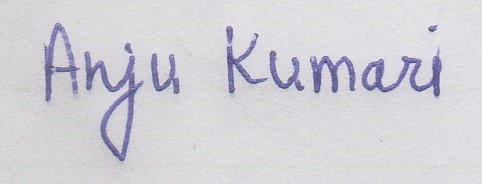 Anju Kumari